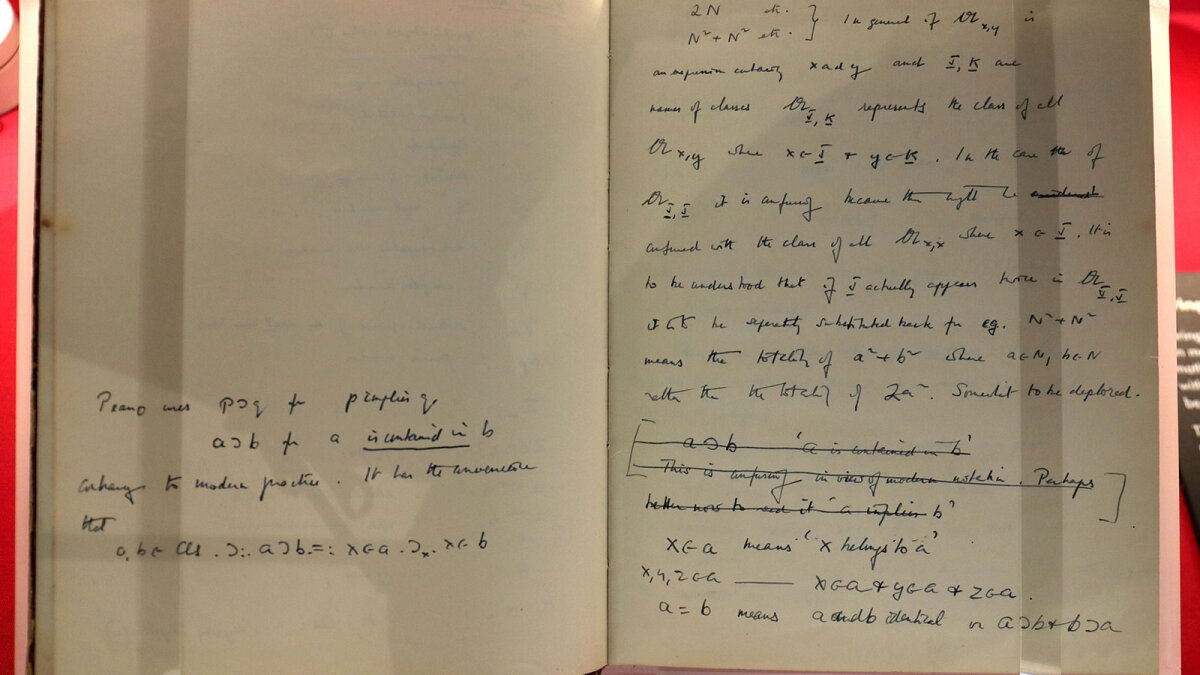 Peano uses p ⊃ q for p implies q
a ⊃ b for a is contained in b
contrary to modern practice. It has the convenience
that
a, b ∈ Cls .⊃:. a ⊃ b .=: x ∈ a .⊃ₓ. x ∈ b
2N etc.
N² + N² etc. } In general if 𝔄x,y is
an expression containing x and y and I, K are
names of classes 𝔄I,K represents the class of all
𝔄x,y where x ∈ I & y ∈ K. In the case of
𝔄I,I it is confusing because this might be
confused with the class of all 𝔄x,x where x ∈ I. It is
to be understood that if I actually appears twice in 𝔄I,I
it is to be separately substituted for e.g. N² + N²
means the totality of a² + b² where a ∈ N, b ∈ N
rather than the totality of 2a². Somewhat to be deplored.
[ a ⊃ b 'a is contained in b'
This is confusing in view of modern notation. Perhaps
better now to read it 'a implies b' ]
x ∈ a means 'x belongs to a'
x, y, z ∈ a —— x ∈ a & y ∈ a & z ∈ a.
a = b means a and b identical or a ⊃ b & b ⊃ a